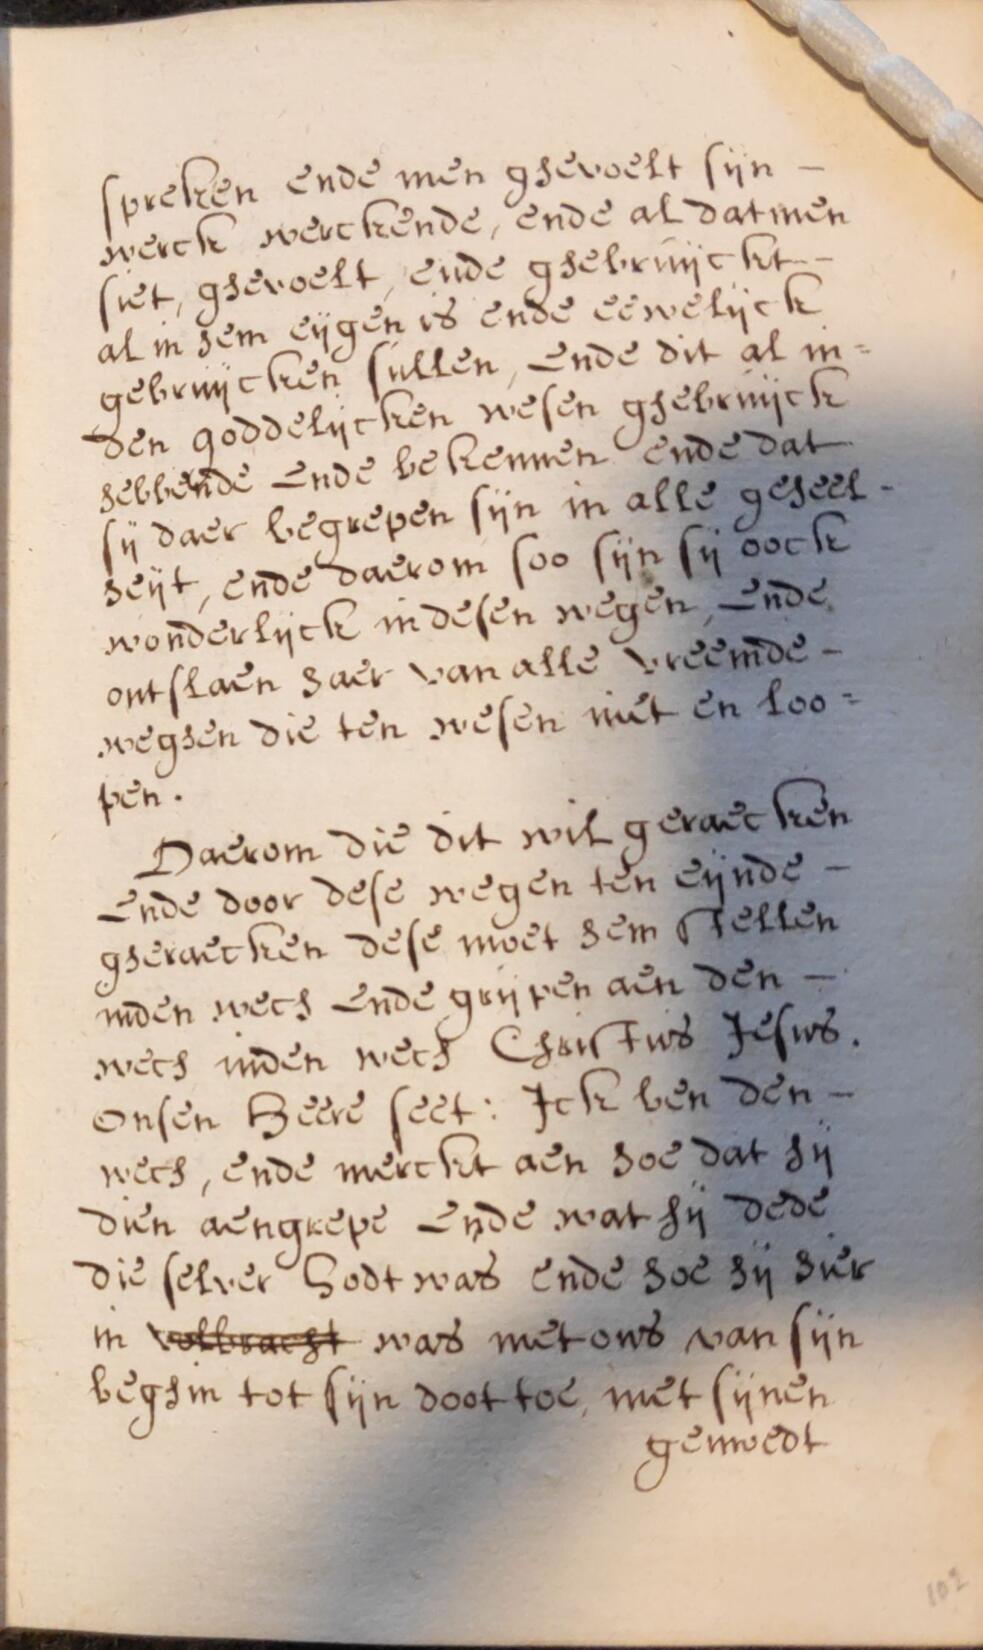 spreken ende men ghevoelt sijn –
werck werckende, ende al datmen
siet, ghevoelt, ende ghebruijckt –
al in hem eijgen is ende eewelijck
gebruijcken sullen, Ende dit al in=
den goddelijcken wesen ghebruijck
hebbende Ende bekennen ende dat
sij daer begrepen sijn in alle geheel-
heijt, ende daerom soo sijn sij oock
wonderlijck in desen wegen, Ende
ontslaen haer van alle vreemde –
weghen die ten wesen niet en loo=
pen.
Daerom die dit wil geraecken
Ende door dese wegen ten eijnde –
gheraecken dese moet hem stellen
inden wech Ende grijpen aen den –
wech inden wech Christus Jesus.
Onsen Heere seet: Jck ben den –
wech, ende merckt aen hoe dat hij
dien aengrepe Ende wat hij dede
die selver Godt was ende hoe hij hier
in volbracht was met ons van sijn
beghin tot sijn doot toe, met sijnen
gemoedt
102